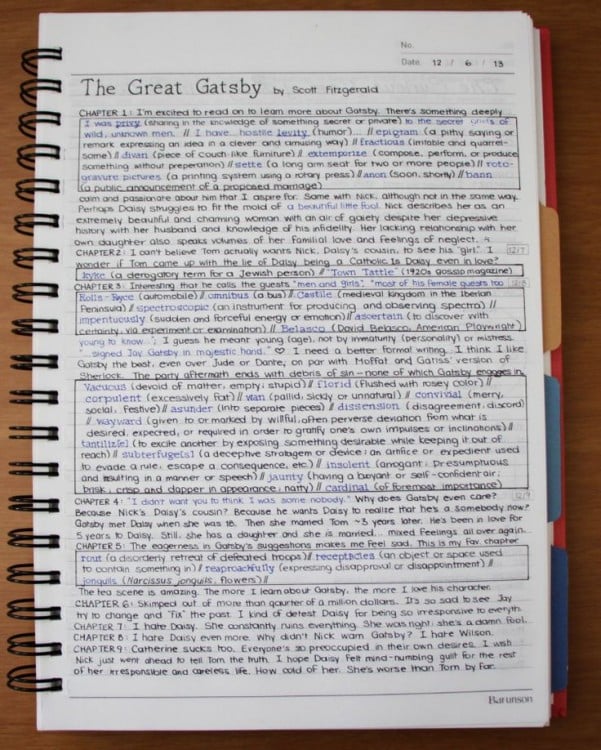 No.
Date 12 / 6 / 13
The Great Gatsby by Scott Fitzgerald
CHAPTER 1: I'm excited to read on to learn more about Gatsby. There's something deeply
I was privy (sharing in the knowledge of something secret or private) to the secret griefs of
wild, unknown men. // I have... hostile levity (humor)... // epigram (a pithy saying or
remark expressing an idea in a clever and amusing way) // fractious (irritable and quarrel-
some) // divan (piece of couch-like furniture) // extemporize (compose, perform, or produce
something without preparation) // sette (a long arm seat for two or more people) // roto-
gravure pictures (a printing system using a rotary press) // anon (soon, shortly) // bann
(a public announcement of a proposed marriage)
calm and passionate about him that I aspire for. Same with Nick, although not in the same way.
Perhaps Daisy struggles to fit the mold of a beautiful little fool. Nick describes her as an
extremely beautiful and charming woman with an air of gaiety despite her depressive
history with her husband and knowledge of his infidelity. Her lacking relationship with her
own daughter also speaks volumes of her familial love and feelings of neglect.
CHAPTER 2: I can't believe Tom actually wants Nick, Daisy's cousin, to see his "girl". I 12/7
wonder if Tom came up with the lie of Daisy being a Catholic. Is Daisy even in love?
kyke (a derogatory term for a Jewish person) // "Town Tattle" (1920s gossip magazine)
CHAPTER 3: Interesting that he calls the guests "men and girls". "most of his female guests too
Rolls-Royce (automobile) // omnibus (a bus) // Castile (medieval kingdom in the Iberian
Peninsula) // spectroscopic (an instrument for producing and observing spectra) //
impentuously (sudden and forceful energy or emotion) // ascertain (to discover with
certainty, via experiment or examination) // Belasco (David Belasco, American Playwright)
young to know..."; I guess he meant young (age), not by immaturity (personality) or mistress.
"...signed Jay Gatsby in majestic hand." ♡ I need a better formal writing. I think I like
Gatsby the best, even over Jude or Dante, on par with Moffat and Gatiss' version of
Sherlock. The party aftermath ends with debris of sin - none of which Gatsby engages in.
vacuous (devoid of matter, empty; stupid) // florid (flushed with rosey color) //
corpulent (excessively fat) // wan (pallid, sickly or unnatural) // convivial (merry,
social, festive) // asunder (into separate pieces) // dissension (disagreement; discord)
// wayward (given to or marked by willful, often perverse deviation from what is
desired, expected, or required in order to gratify one's own impulses or inclinations) //
tantiliz[e] (to excite another by exposing something desirable while keeping it out of
reach) // subterfuge[s] (a deceptive stratagem or device; an artifice or expedient used
to evade a rule, escape a consequence, etc.) // insolent (arrogant; presumptuous
and insulting in a manner or speech) // jaunty (having a buoyant or self-confident air;
brisk, crisp and dapper in appearance; natty) // cardinal (of foremost importance)
CHAPTER 4: "I didn't want you to think I was some nobody." Why does Gatsby even care? 12/9
Because Nick's Daisy's cousin? Because he wants Daisy to realize that he's a somebody now?
Gatsby met Daisy when she was 18. Then she married Tom ~3 years later. He's been in love for
5 years to Daisy. Still, she has a daughter and she is married... mixed feelings all over again.
CHAPTER 5: The eagerness in Gatsby's suggestions makes me feel sad. This is my fav chapter
rout (a disorderly retreat of defeated troops) // receptacles (an object or space used
to contain something in) // reproachfully (expressing disapproval or disappointment) //
jonquils (Narcissus jonquils, flowers) //
The tea scene is amazing. The more I learn about Gatsby, the more I love his character.
CHAPTER 6: Skimped out of more than quarter of a million dollars. It's so sad to see Jay
try to change and "fix" the past. I kind of detest Daisy for being so irresponsive to everyth.
CHAPTER 7: I hate Daisy. She constantly ruins everything. She was right: she's a damn fool.
CHAPTER 8: I hate Daisy even more. Why didn't Nick warn Gatsby? I hate Wilson.
CHAPTER 9: Catherine sucks too. Everyone's so preoccupied in their own desires. I wish
Nick just went ahead to tell Tom the truth. I hope Daisy felt mind-numbing guilt for the rest
of her irresponsible and careless life. How cold of her. She's worse than Tom by far.
Barunson